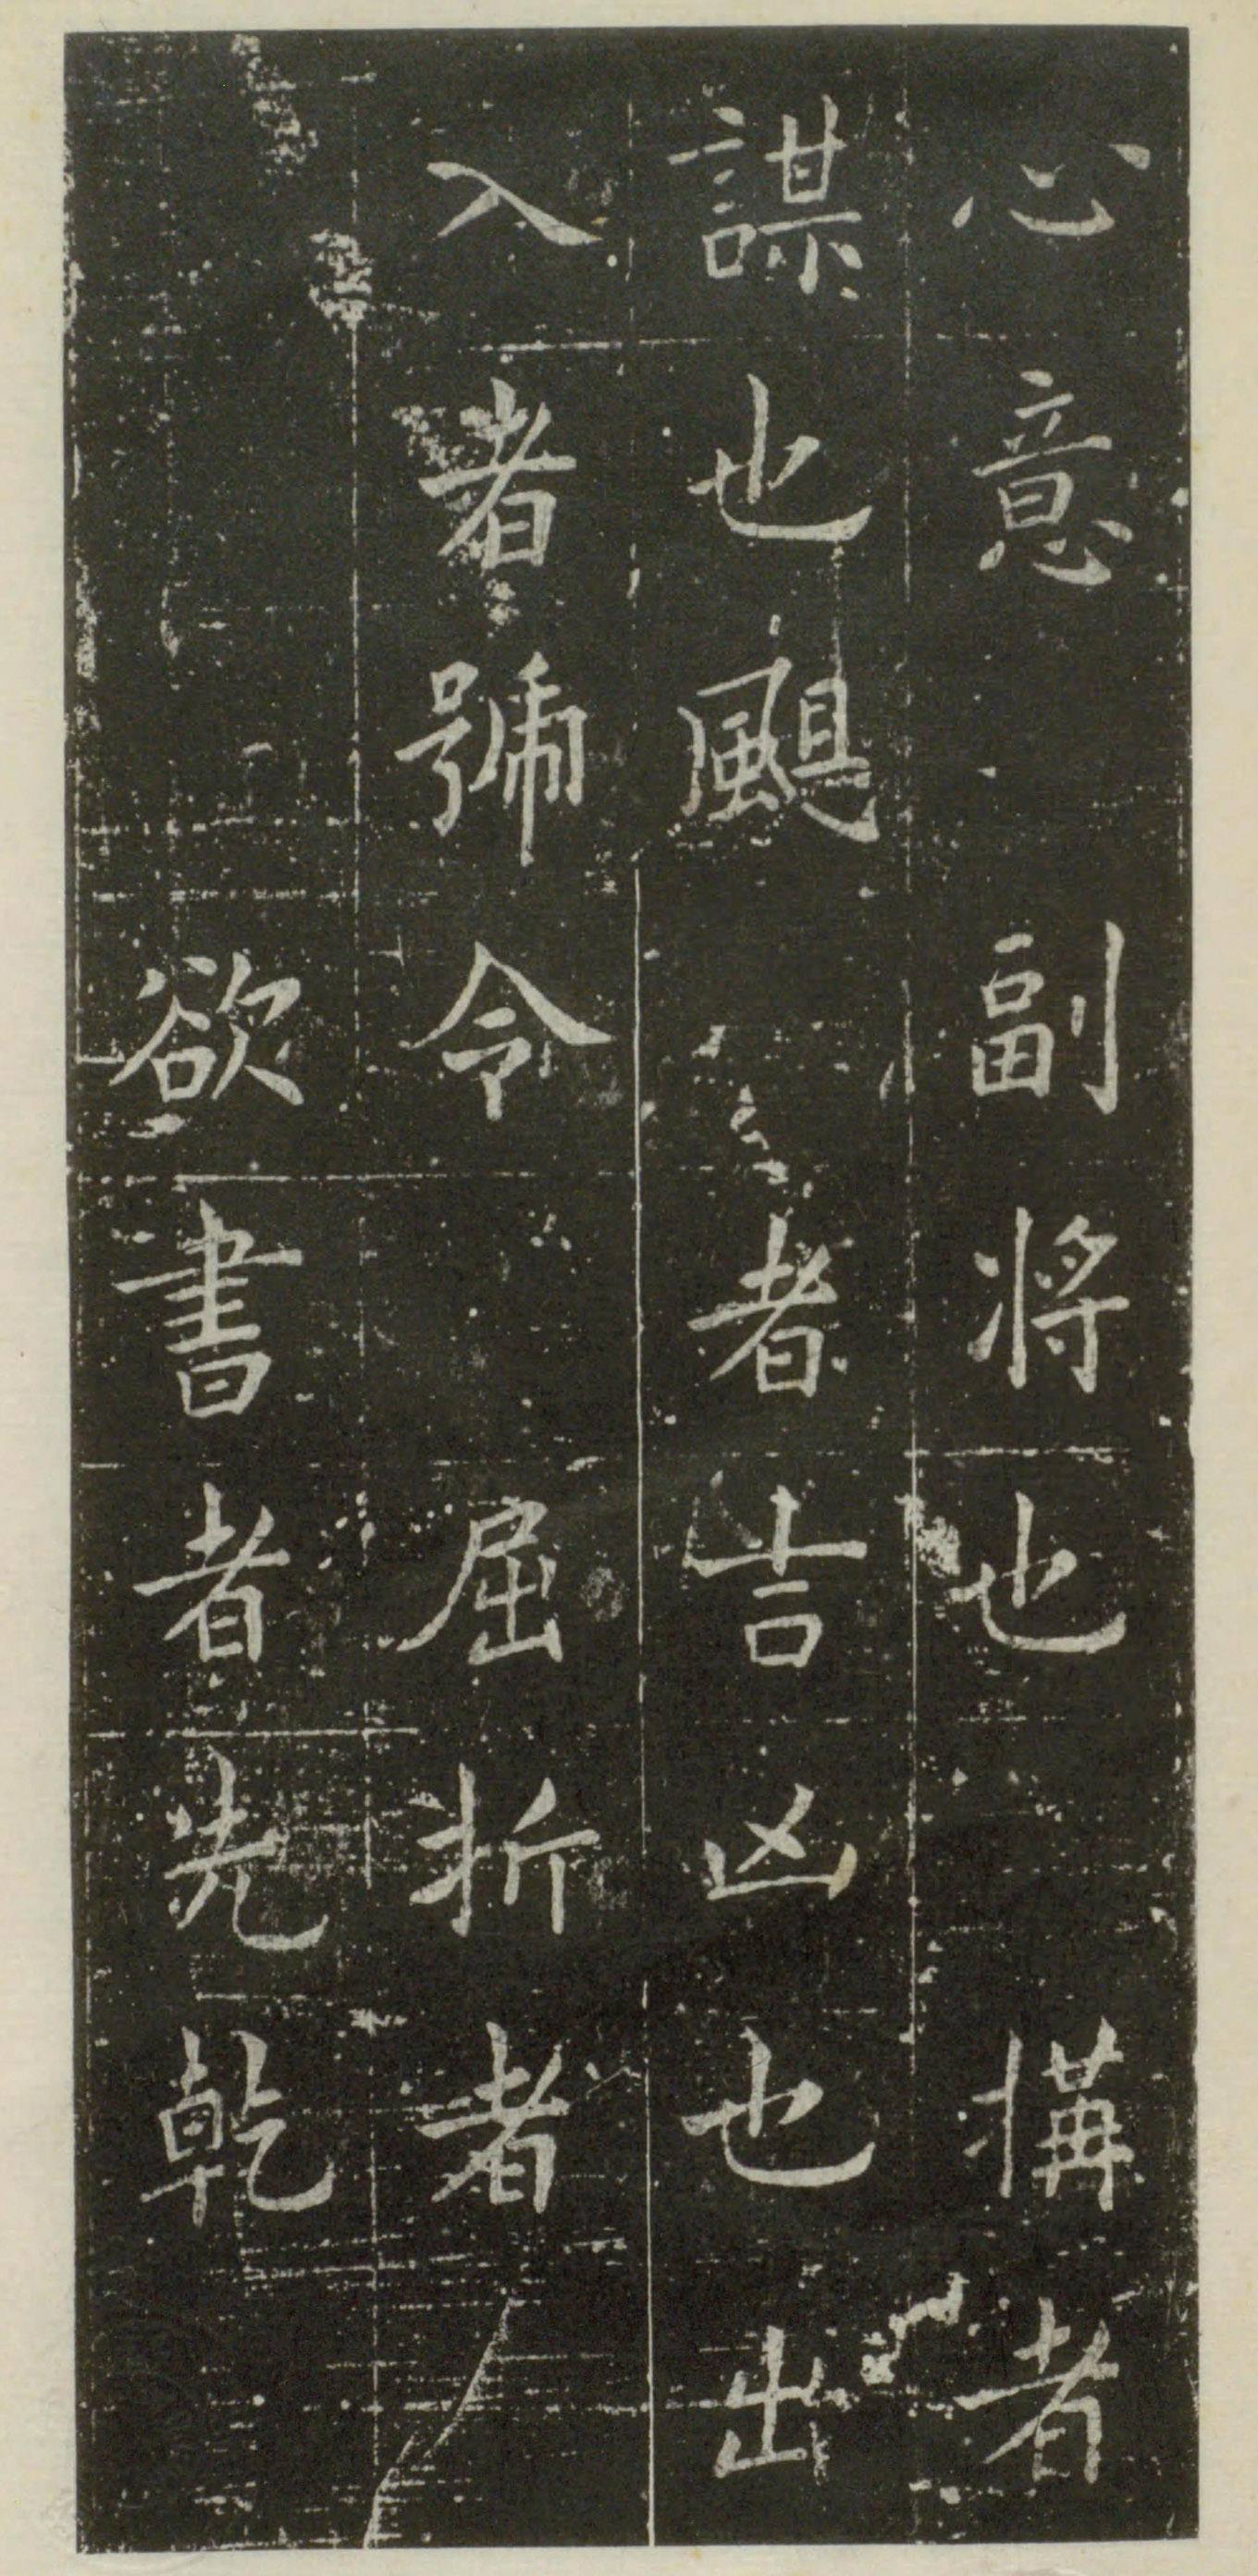 心意副將也搆者
謀也颶者吉凶也出
入者號令屈折者
欲書者先乾